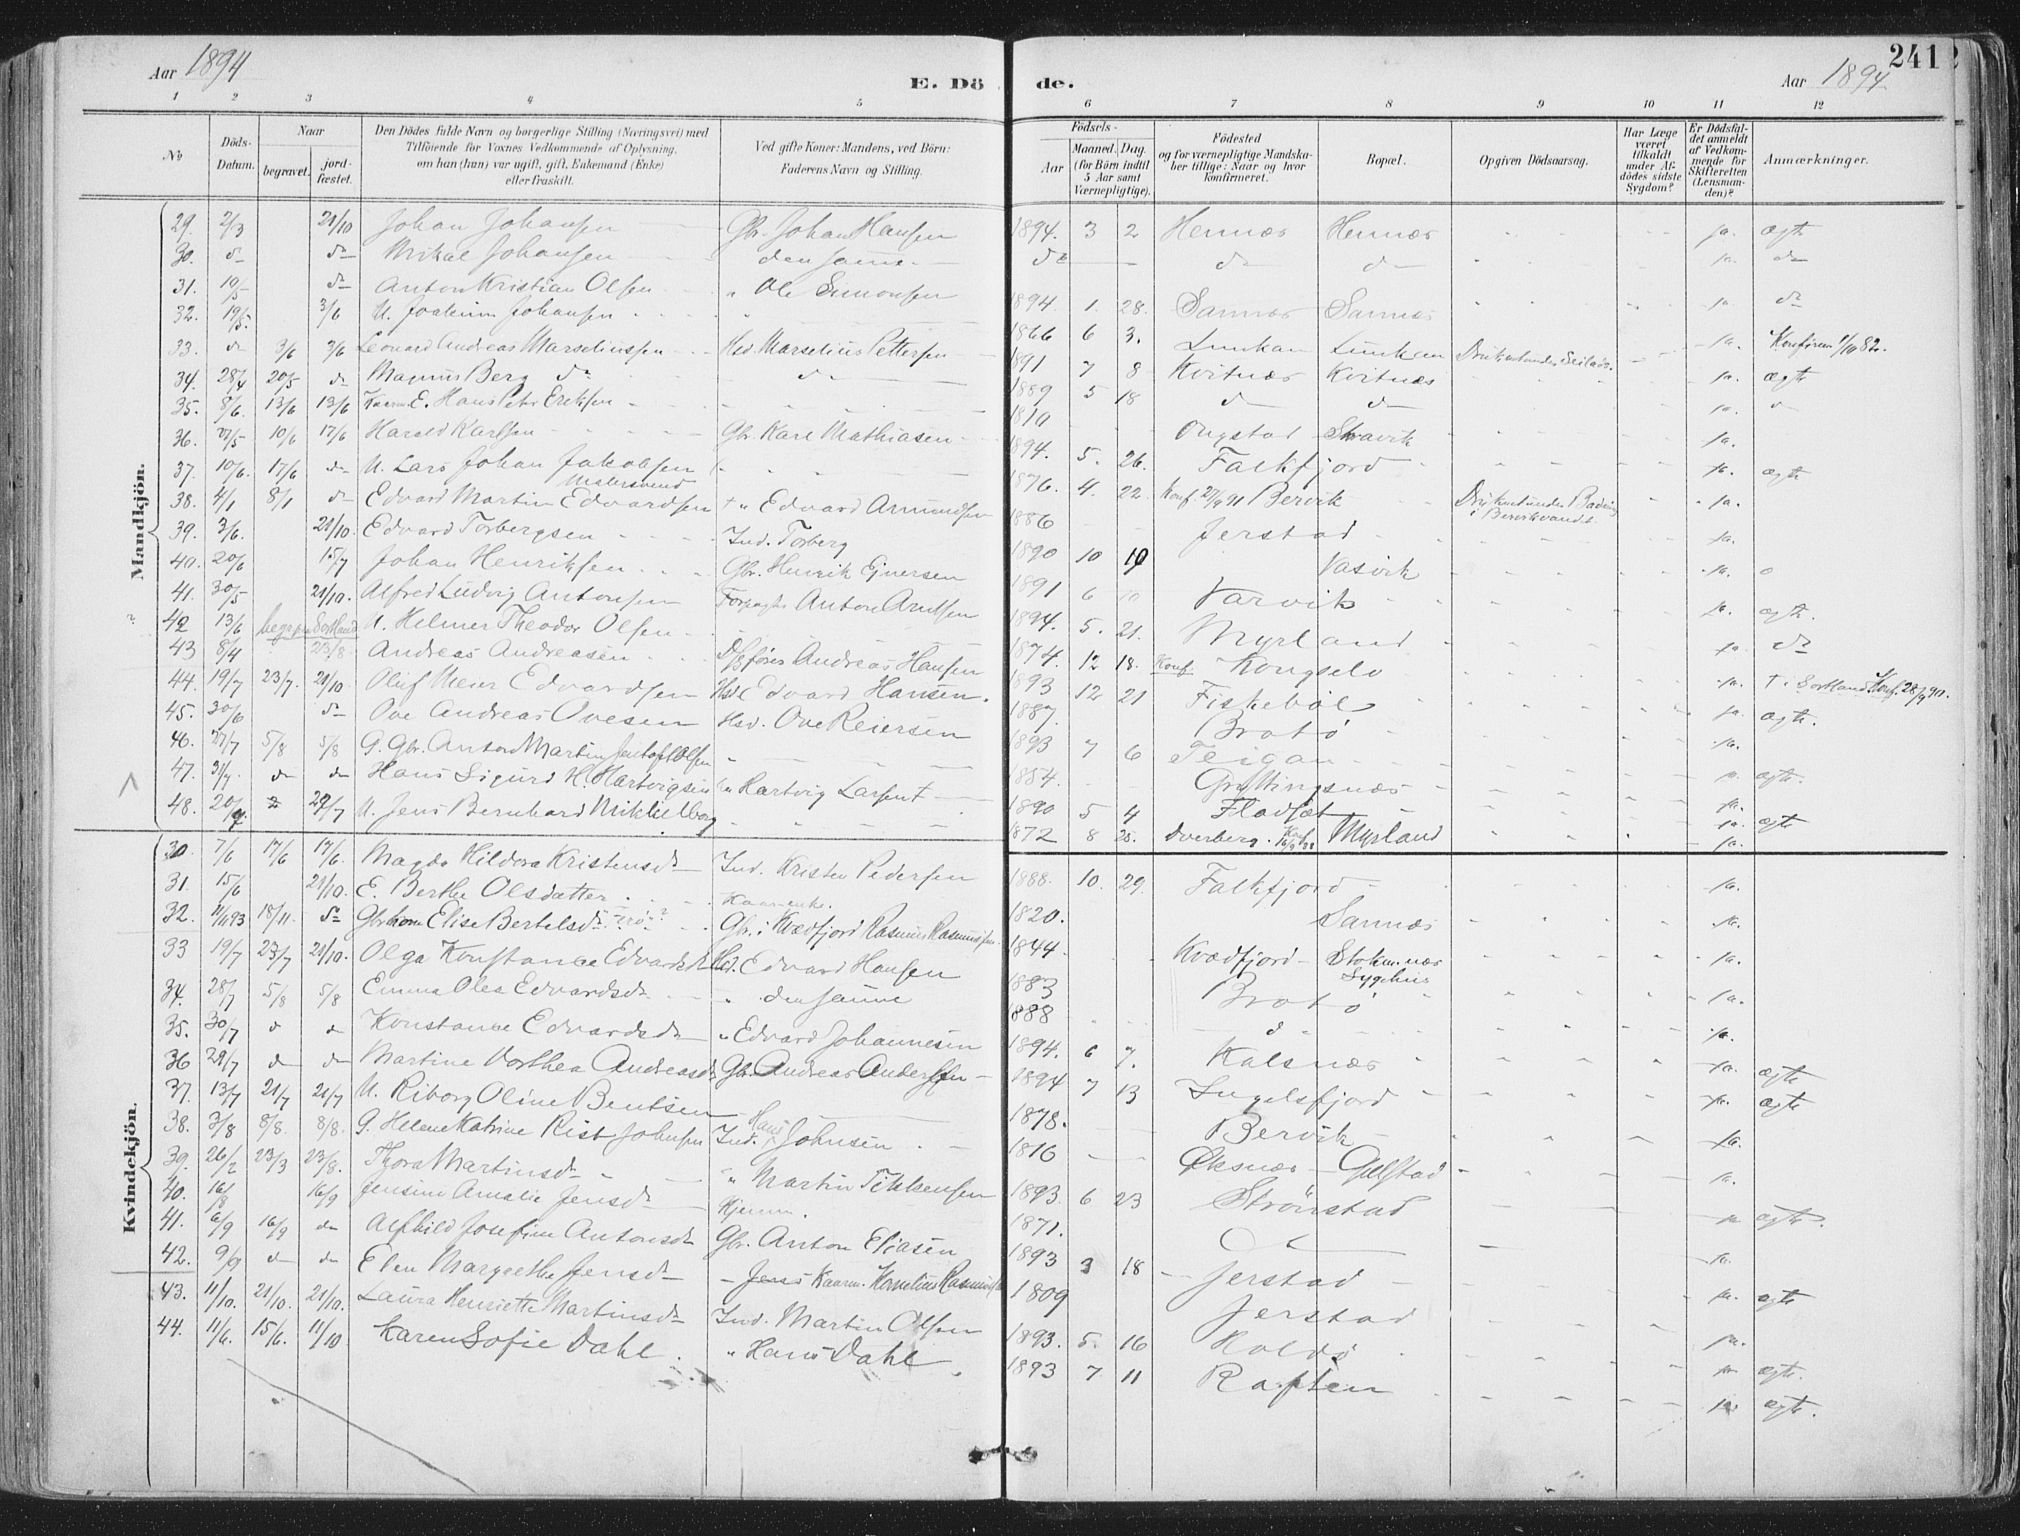 Aar 1894
E. Dö
de.
Aar 1894.
241
1 2 3 4 5 6 7 8 9 10 11 12
No
Döds-Datum.
Naar
begravet.
jord-fæstet.
Den Dödes fulde Navn og borgerlige Stilling (Næringsvei) med
Tilföiende for Voxnes Vedkommende af Oplysning,
om han (hun) var ugift, gift, Enkemand (Enke)
eller fraskilt.
Ved gifte Koner: Mandens, ved Börn:
Faderens Navn og Stilling.
Födsels-
Aar
Maaned. Dag.
(for Börn indtil 5 Aar samt Værnepligtige).
Födested
og for værnepligtige Mandskaber tillige: Naar og hvor konfirmeret.
Bopæl.
Opgiven Dödsaarsag.
Har Læge været tilkaldt under Afdödes sidste Sygdom?
Er Dödsfaldet anmeldt af Vedkommende for Skifteretten (Lensmanden)?
Anmærkninger.
Mandkjön.
29. 2/3 21/10 Johan Johansen Gbr. Johan Hansen 1894. 3 2 Hennes Hennes ja. ægte
30. do do Mikal Johansen den samme do do do ja. do
31. 10/5 do Anton Kristian Olsen " Ole Simonsen 1894. 1. 28. Sannes Sannes ja. do
32. 19/5. 3/6 U. Joakim Johansen 1866 6 3. Lunkan Lunkan Druknet under Seilads. ja. Konfirm 1/10 82.
33. do 3/6 3/6 Leonard Andreas Marseliussen Hsd. Marselius Pettersen 1891 7 8 Kvitnes Kvitnes ja. ægte
34. 28/4 20/5 do Magnus Berg do do 1889 5 18 do do ja. do
35. 8/6. 13/6 13/6 Kaarm. E. Hans Peter Eriksen 1810 Ongstad Skavik ja.
36. 27/5 10/6 17/6 Harald Karlsen Gbr. Karl Mathiasen 1894. 5. 26. Falkfjord ja. ægte
37. 10/6. 17/6 do U. Lars Johan Jakobsen 1876. 4. 22. Konf 27/9 91 Bervik Druknet under Badning i Bervikvandet ja.
38. 4/1 8/1 do Edvard Martin Edvardsen + " Edvard Amundsen 1886 Jerstad ja.
39. 3/6. 21/10. Edvard Torbergsen Ind. Torberg 1890 10 10 Vasvik ja. o
40. 20/6 15/7 Johan Henriksen Gbr. Henrik Ejnersen 1891 6 10 Varvik ja. ægte.
41. 30/5 21/10. Alfred Ludvig Antonsen Forpagter Anton Arntsen 1894. 5. 21. Myrland ja. do
42 13/6 begr. paa Sortland U. Helmer Theodor Olsen 1874. 12 18. Konf. Kongselv ja. + Sortland Konf. 28/9 90.
43 8/4 23/8 Andreas Andreasen D/s fører Andreas Hansen 1893 12 21 Fiskebøl ja. ægte.
44. 19/7 23/7. 21/10 Oluf Meier Edvardsen Hsd. Edvard Hansen. 1887. Brotø ja.
45. 30/6 do Ove Andreas Ovesen Hsd. Ove Reiersen 1893 7 6 Teigan ja. ægte.
46. 27/7 5/8 5/8 G. Gbr. Anton Martin Jentoft Olsen 1854. Grytingsnæs ja.
47. 31/7. do do Hans Sigurd H. Hartvigsen Hartvig Larsen + 1890 5 4 Flodsæt ja. ægte
48. 20/7 29/7 U. Jens Bernhard Mikkelborg 1872 8 25. Dverberg. Konf. Myrland ja.
Kvindekjön.
30. 7/6 17/6 17/6. Magda Hildora Kristensd. Ind. Kristen Pedersen 1888. 10. 29. Falkfjord ja.
31. 15/6 21/10. E. Berthe Olsdatter Kaarenke. 1820. Sannes ja.
32. 11/11 93 18/11. do Gbrkone Elise Bertelsd. Gbr. i Kvædfjord Rasmus Rasmussen 1844 Kvædfjord Stokmarknæs Sygehus ja.
33 19/7 23/7 21/10. Olga Konstanse Edvardsd. Hsd. Edvard Hansen 1883 Brotø ja.
34. 28/7 5/8 5/8 Emma Olea Edvardsd. " den samme 1888 do ja.
35. 30/7 do do Konstanse Edvardsd. " Edvard Johannesen 1894. 6 7. Kalsnæs ja. ægte
36 29/7 do do Martine Dorthea Andreasd. Gbr. Andreas Andersen 1894 7 13 Ingelsfjord ja. ægte
37. 13/7 21/7 21/7 U. Riborg Oline Bentsen 1878. Bervik ja.
38. 3/8 8/8. 8/8. G. Helene Katrine Rist Johnsen Ind. Hans Johnsen 1816 Øksnæs Gulstad ja.
39. 26/2 23/3 23/8. Thora Martinsd. " Martin Tikkensen 1893. 6 23 Strønstad ja. ægte.
40. 16/8 16/9 Jensine Amalie Jensd. Hjemm. 1871. do ja.
41. 6/9 16/9 do Alfhild Josefine Antonsd. Gbr. Anton Eliasen 1893 3 18 Jerstad ja. ægte
42. 9/9 do do Elen Margrethe Jensd. Jens Kaarm. Kornelius Rasmussen 1809 Jerstad ja.
43. 11/10. 21/10. 21/10. Laura Henriette Martinsd. Ind. Martin Olsen 1893. 5. 16 Holdø ja. ægte.
44. 11/6. 15/6. 11/10 Karen Sofie Dahl. " Hans Dahl 1893 7 11 Raften ja. ægte.